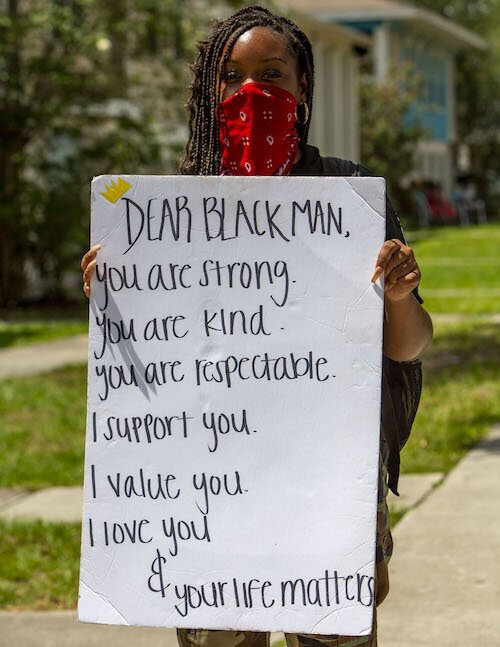 DEAR BLACK MAN,
you are strong.
you are kind.
you are respectable.
I support you.
I value you.
I love you
& your life matters